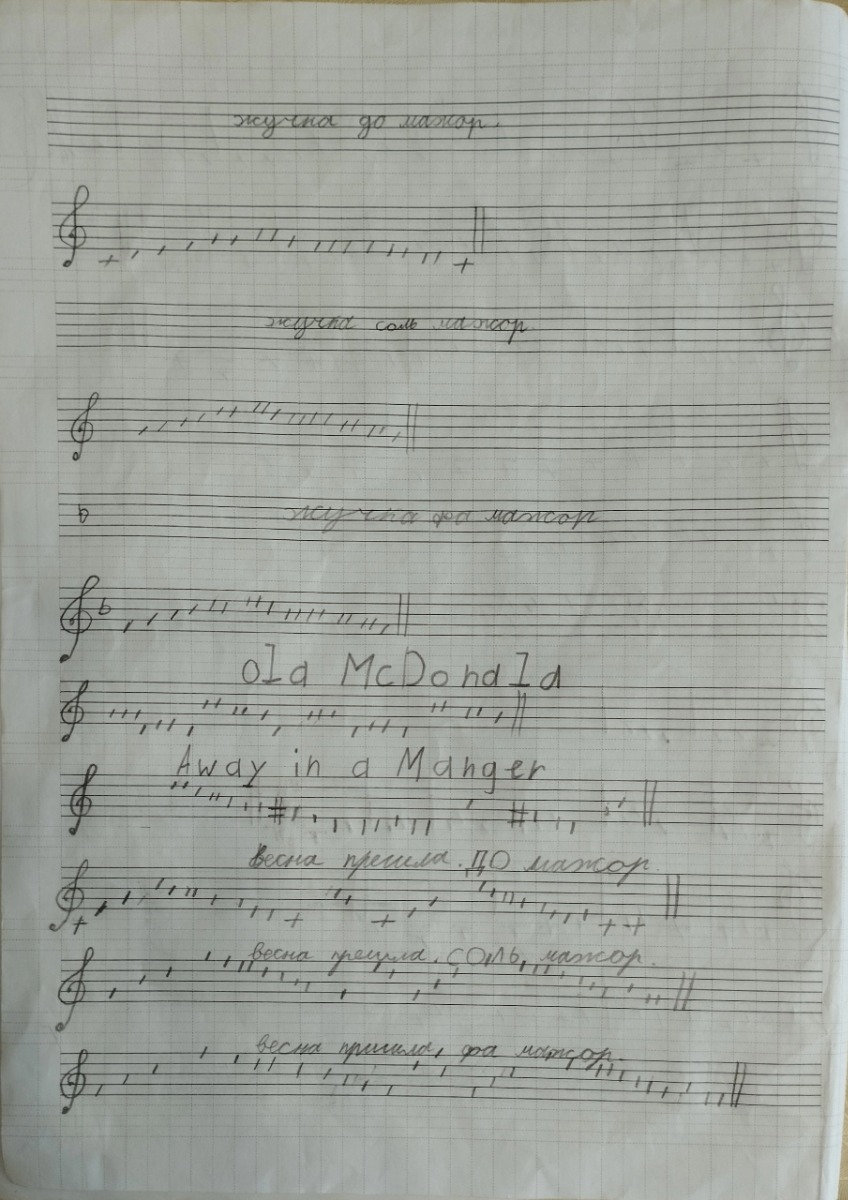 жучка до мажор.
жучка соль мажор
жучка фа мажор
old McDonald
Away in a Manger
весна пресила. ДО мажор.
весна прецила. СОЛЬ, мажор.
весна присила, фа мажор.